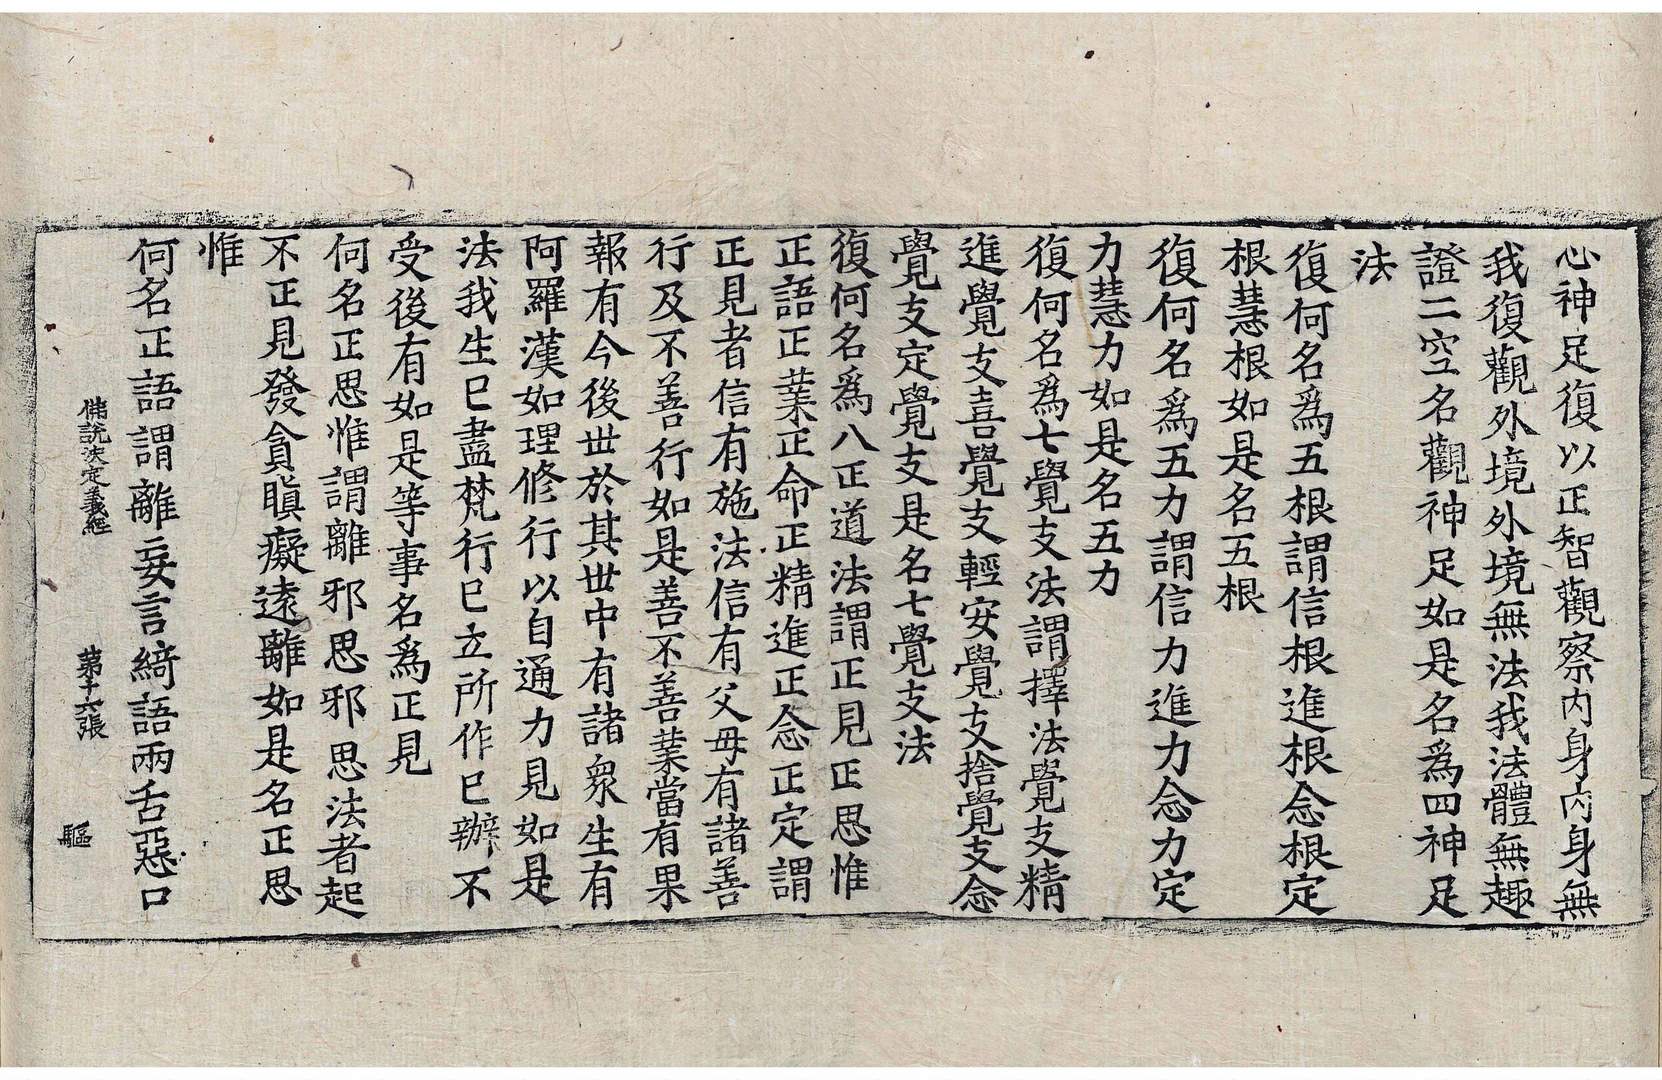 心神足復以正智觀察內身內身無
我復觀外境外境無法我法體無趣
證二空名觀神足如是名爲四神足
法
復何名爲五根謂信根進根念根定
根慧根如是名五根
復何名爲五力謂信力進力念力定
力慧力如是名五力
復何名爲七覺支法謂擇法覺支精
進覺支喜覺支輕安覺支捨覺支念
覺支定覺支是名七覺支法
復何名爲八正道法謂正見正思惟
正語正業正命正精進正念正定謂
正見者信有施法信有父母有諸善
行及不善行如是善不善業當有果
報有今後世於其世中有諸衆生有
阿羅漢如理修行以自通力見如是
法我生已盡梵行已立所作已辦不
受後有如是等事名爲正見
何名正思惟謂離邪思邪思法者起
不正見發貪瞋癡遠離如是名正思
惟
何名正語謂離妄言綺語兩舌惡口
佛說決定義經 第十六張 驅